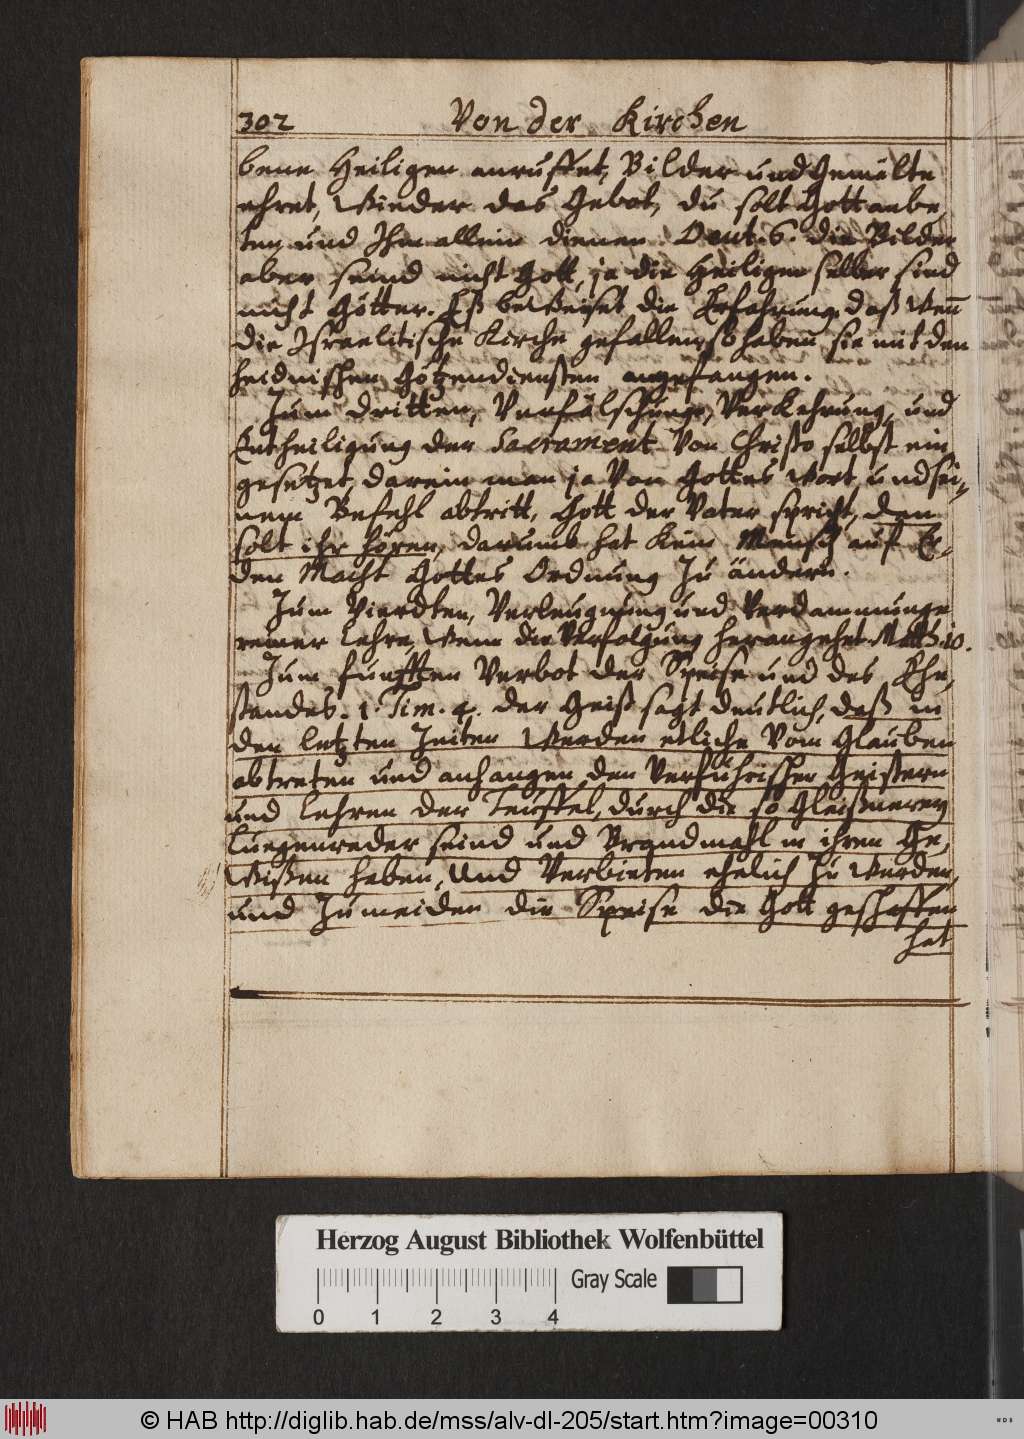 302 Von der Kirchen
bene Heiligen anruffet, Bilder und Gemälte
ehret, Wieder das Gebot, du solt Gott anbe,
ten und Ihm allein dienen. Deut. 6. die Bilder
aber seind nicht Gott, ja die Heiligen selber sind
nicht Götter. Eß beweiset die Erfahrung, daß wen̅
die Israelitische Kirche gefallen, so haben sie mit den
heidnischen Götzendiensten angefangen.
Zum dritten, Verfälschunge, Verkehrung, und
Entheiligung der Sacrament von Christo selbst ein
gesetzet, darein man ja von Gottes Wort und sei-
nem Befehl abtritt, Gott der Vater spricht, den
solt ihr hören, darumb hat kein Mensch auf Er-
den Macht Gottes Ordnung zu ändern.
Zum Vierdten, Verleugnung und Verdammunge
reiner Lehre, Wenn die Verfolgung herangehet Matth. 10.
Zum funfften Verbot der Speise und des Ehe,
standes. 1. Tim. 4. der Geist sagt deutlich, daß in
den letzten Zeiten Werden etliche Vom Glauben
abtreten und anhangen den Verführischen Geistern
und Lehren der Teuffel, durch die so Gleißnerey
Luegenreder seind und Brandmahl in ihren Ge,
Wißen haben, Und Verbieten ehelich zu Werden,
und Zumeiden die Speise die Gott geschaffen
hat
Herzog August Bibliothek Wolfenbüttel
Gray Scale
0 1 2 3 4
© HAB http://diglib.hab.de/mss/alv-dl-205/start.htm?image=00310